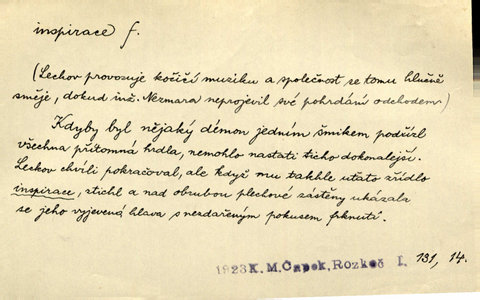 inspirace f.
(Lechov provozuje kočičí muziku a společnost se tomu hlučně
směje, dokud inž. Nezmara neprojevil své pohrdání odchodem)
Kdyby byl nějaký démon jedním šmikem podřízl
všechna přítomná hrdla, nemohlo nastati ticho dokonalejší.
Leskov chvíli pokračoval, ale když mu takhle utato zřídlo
inspirace, ztichl a nad obrubou plechové zástěny ukázala
se jeho vyjevená hlava s nezdařeným pokusem frknutí.
1923 K. M. Čapek, Rozkoč I. 131, 14.